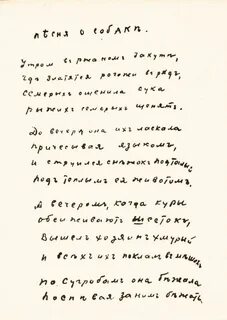 Пѣсня о собакѣ.
Утром в ржаном закутѣ,
Гдѣ златятся рогожи в ряд,
Семерых ощенила сука
Рыжих семерых щенят.
До вечера она их ласкала
Причесывая языком,
И струился снѣжок подталый
Под теплым ея животом.
А вечером, когда куры
Обсиживают шесток,
Вышел хозяин хмурый
И всѣх их поклал в мѣшок.
По сугробам она бѣжала
Поспѣвая за ним бѣжать